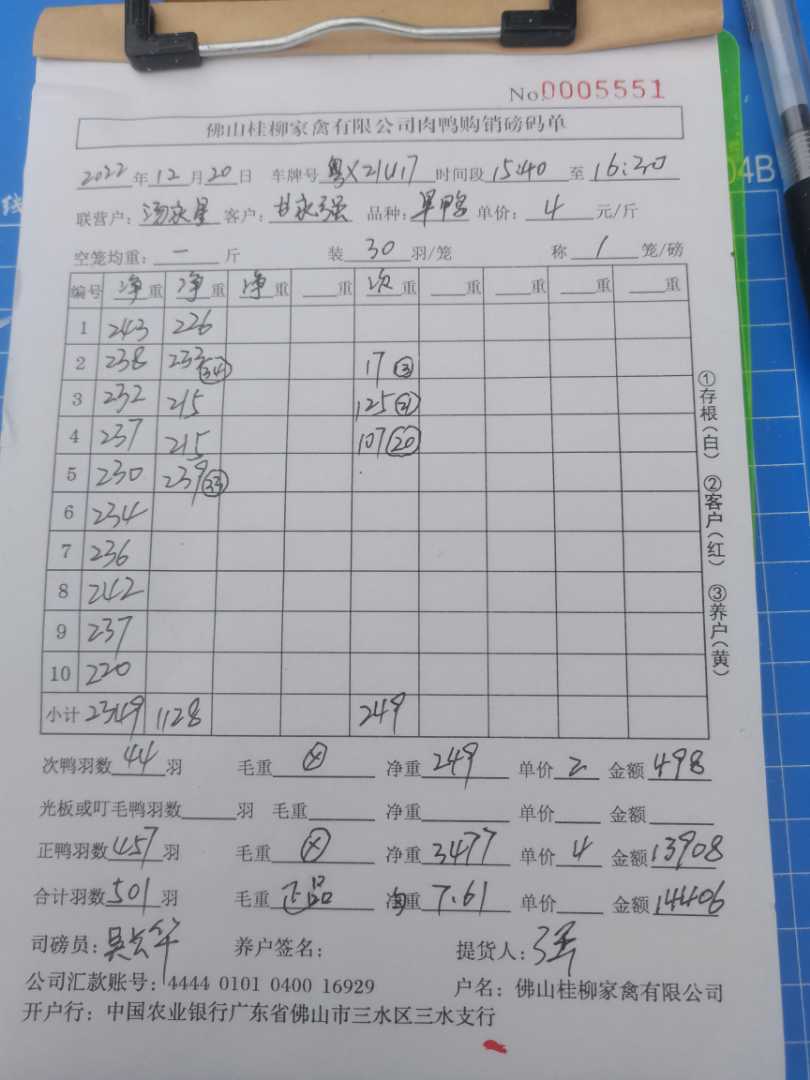 No.0005551
佛山桂柳家禽有限公司肉鸭购销磅码单
2022年12月20日 车牌号 粤X21U17 时间段 15:40 至 16:30
联营户: 客户: 甘永强 品种: 单价: 4 元/斤
空笼均重: — 斤 装 30 羽/笼 称 1 笼/磅
编号 净重 净重 净重 重 次重 重 重 重 重
1 243 226
2 238 233 (34) 17 (3)
3 232 215 125 (21)
4 237 215 107 (20)
5 230 239 (33)
6 234
7 236
8 242
9 237
10 220
小计 2349 1128 249
次鸭羽数 44 羽 毛重 净重 249 单价 2 金额 498
光板或叮毛鸭羽数 羽 毛重 净重 单价 金额
正鸭羽数 457 羽 毛重 净重 3477 单价 4 金额 13908
合计羽数 501 羽 毛重 正品 均重 7.61 单价 金额 14406
司磅员: 养户签名: 提货人: 强
公司汇款账号: 4444 0101 0400 16929 户名: 佛山桂柳家禽有限公司
开户行: 中国农业银行广东省佛山市三水区三水支行
①存根(白) ②客户(红) ③养户(黄)
04B
线